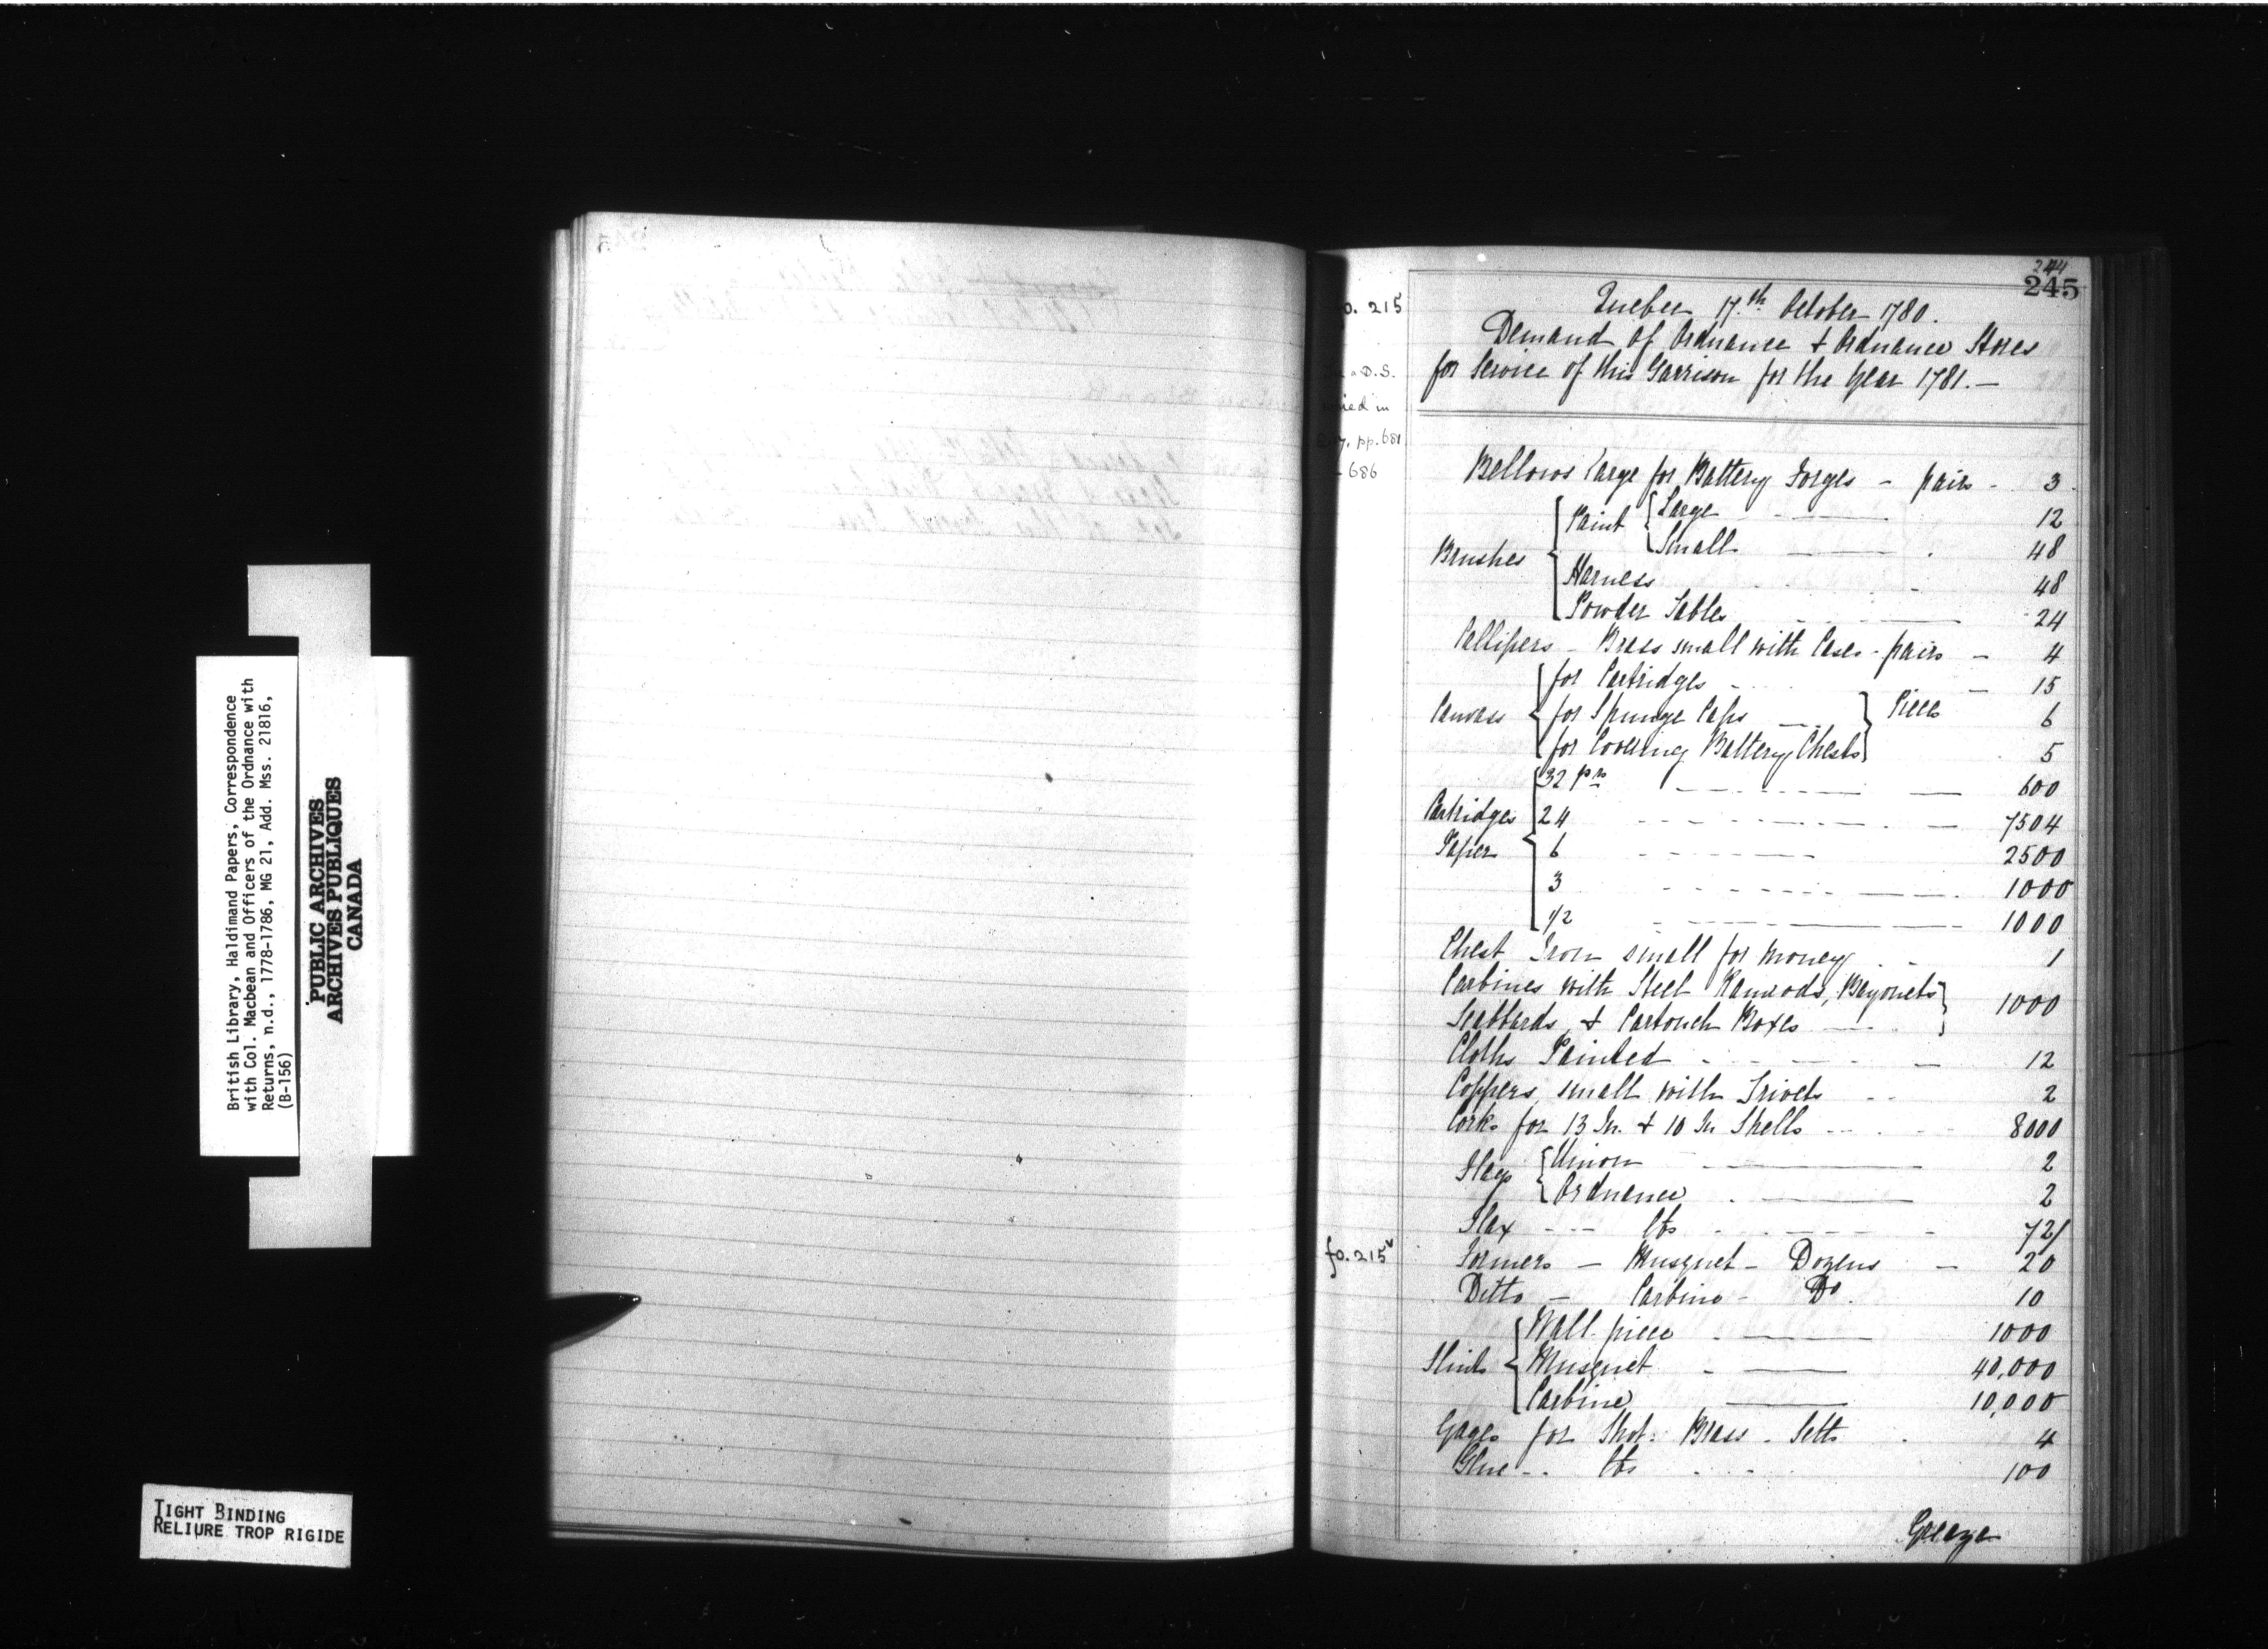 British Library, Haldimand Papers, Correspondence
with Col. Macbean and Officers of the Ordnance with
Returns, n.d., 1778-1786, MG 21, Add. Mss. 21816,
(B-156)
PUBLIC ARCHIVES
ARCHIVES PUBLIQUES
CANADA
TIGHT BINDING
RELIURE TROP RIGIDE
244
245
fo. 215
D.S.
in
pp. 681
- 686
Quebec 17.th October 1780.
Demand of Ordnance & Ordnance Stores
for Service of this Garrison for the Year 1781.—
Bellows large for Battery Forges - pairs - 3
Brushes { Paint { Large 12
Small 48
Harness 48
Powder Tables 24
Callipers - Brass small with Cases - pairs - 4
Canvass { for Cartridges 15
for Spunge Caps } Pieces 6
for Covering Battery Chests 5
Cartridges Paper { 32 prs 600
24 7504
6 2500
3 1000
1/2 1000
Chest Iron small for Money 1
Carbines with Steel Ramrods, Bayonets }
Scabbards, & Cartouch Boxes } 1000
Cloths Painted 12
Coppers, small with Trivets 2
Corks for 13 In. & 10 In Shells 8000
Flags { Union 2
Ordnance 2
Flax --- lbs 72
fo. 215v
Formers - Musquet - Dozens - 20
Ditto - Carbine - Do 10
Flints { Wall piece 1000
Musquet 40,000
Carbine 10,000
Gages for Shot: Brass - Setts 4
Glue - - lbs 100
Grease